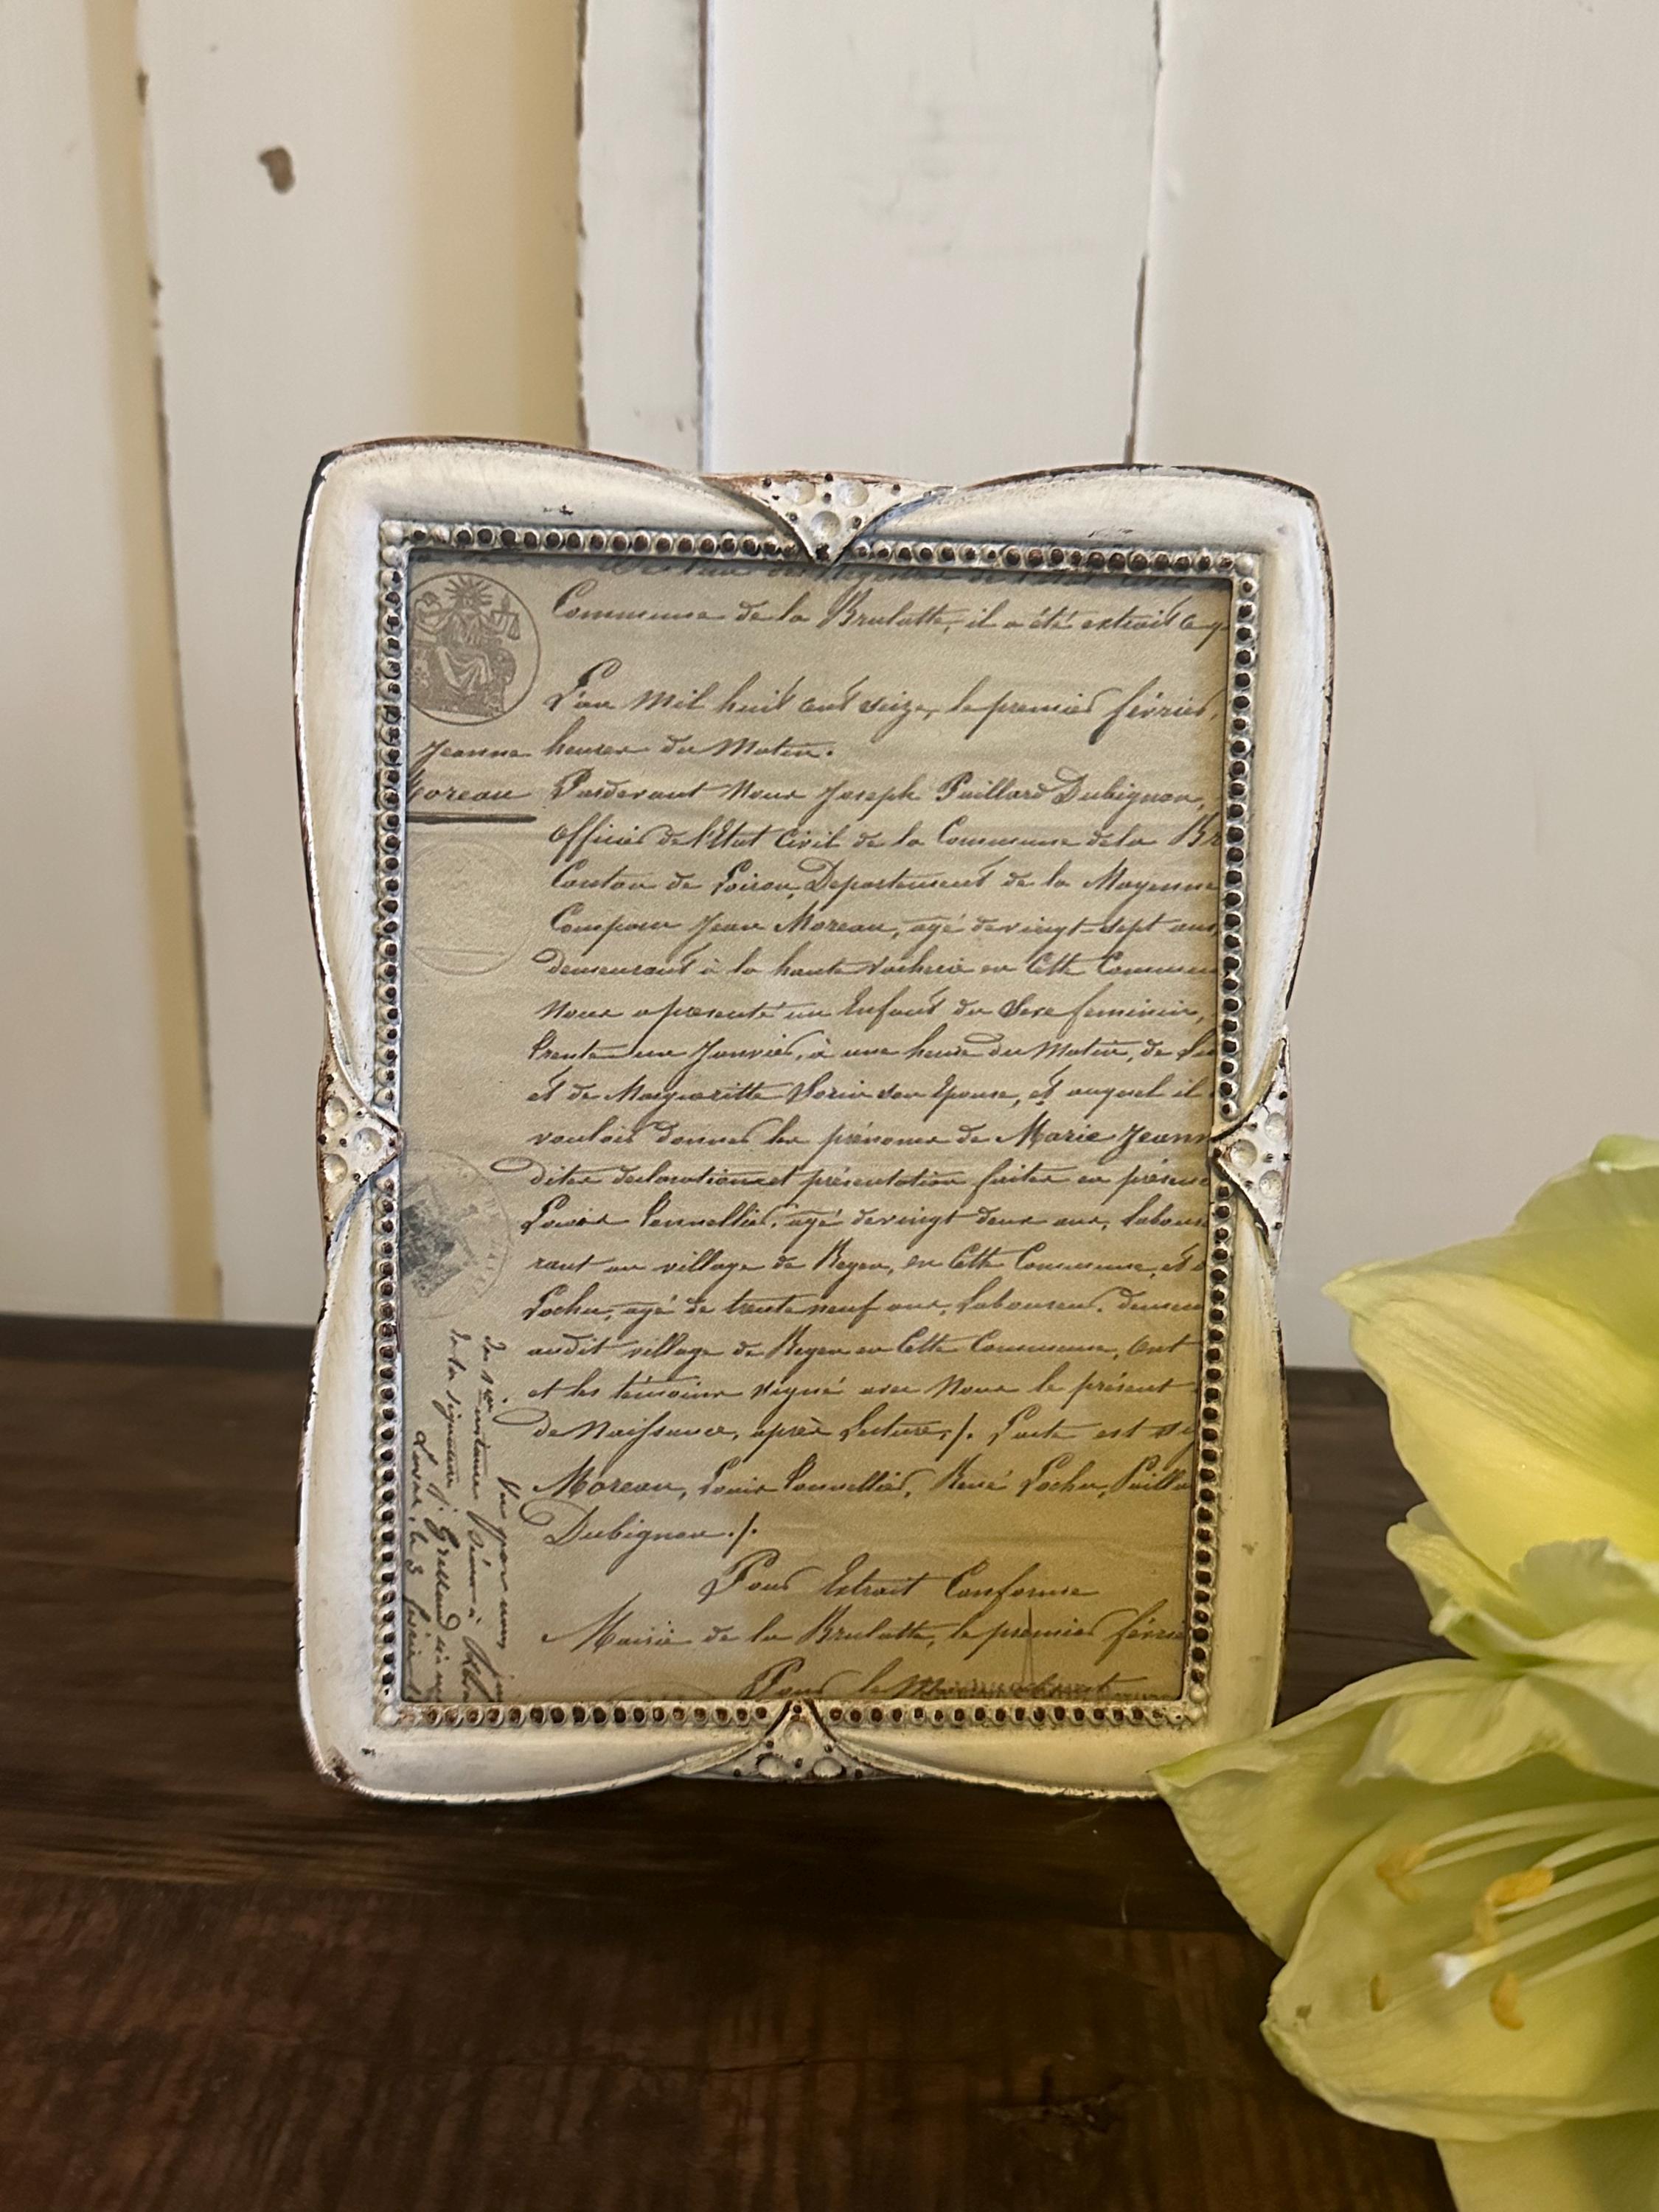 Commune de la Brulatte, il a été extrait ce q
L'an mil huit cent seize, le premier février,
Jeanne heures du Matin.
Moreau Pardevant Nous Joseph Paillard Dubignon,
Officier de l'Etat Civil de la Commune de la Br
Canton de Loiron, Departement de la Mayenne
Comparu Jean Moreau, agé de vingt-sept ans
demeurant à la haute Vacherie en Cette Commun
Nous a presenté un Enfant du Sexe feminin,
trente un Janvier, à une heure du Matin, de Lui
et de Margueritte Sorin son Epouse, et auquel il
vouloir donner les prénoms de Marie Jeann
dites declaration et présentation faites en présence
Louis age de vingt deux ans, labour
rant au village de en Cette Commune, et
agé de trente neuf ans, Laboureur, demeu
audit village de en Cette Commune, ont
et les témoins signé avec Nous le présent
de Naissance, après Lecture./. L'acte est sig
Moreau, Louis René Paillar
Dubignon ./.
Pour Extrait Conforme
Mairie de la Brulatte, le premier févrie
Pour le
Vu par nous
de la signature
Laval, le 3